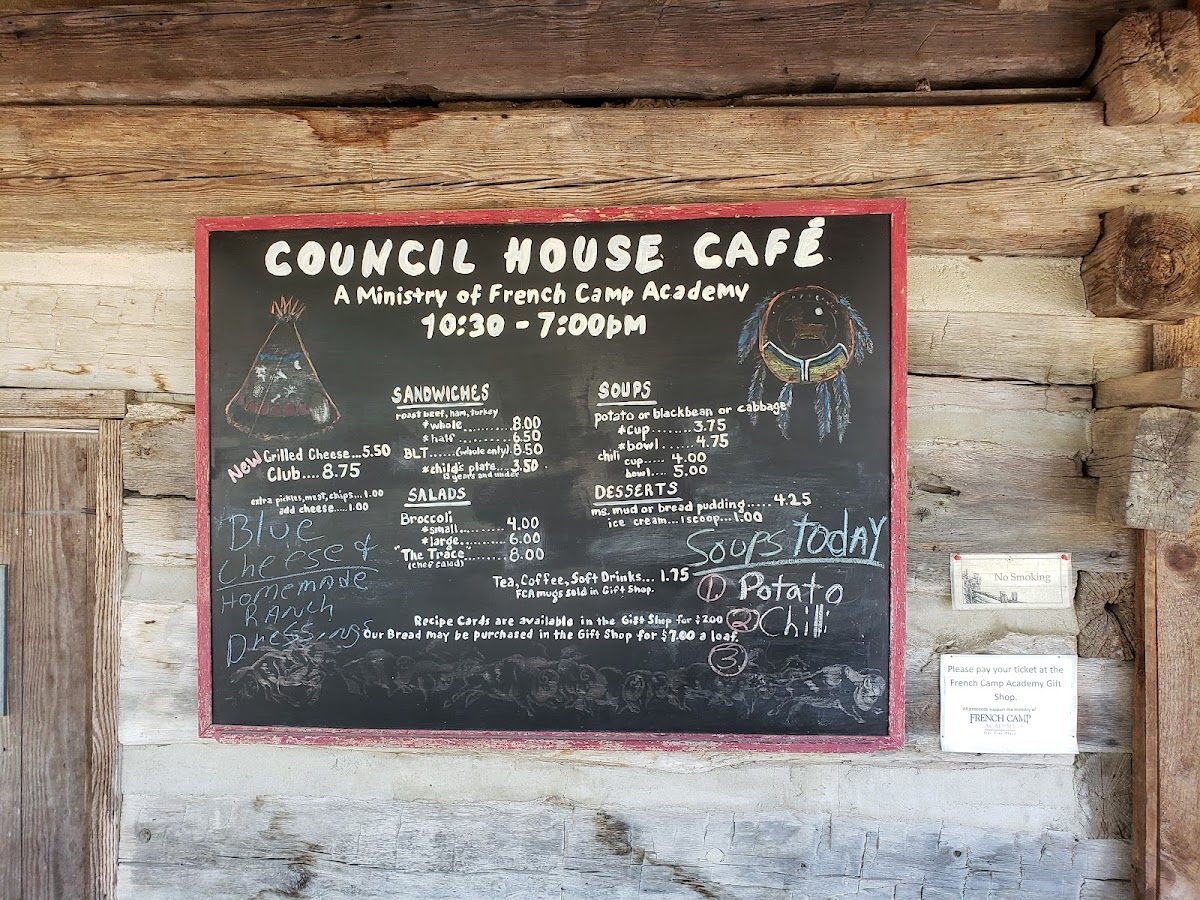 COUNCIL HOUSE CAFÉ
A Ministry of French Camp Academy
10:30 - 7:00pm
SANDWICHES
roast beef, ham, turkey
*whole..........8.00
*half..........6.50
BLT......(whole only) 8.50
*child's plate....3.50
12 years and under
New Grilled Cheese...5.50
Club....8.75
extra pickles, meat, chips...1.00
add cheese.....1.00
SALADS
Broccoli
*small..........4.00
*large..........6.00
"The Trace"........8.00
(chef salad)
SOUPS
potato or blackbean or cabbage
*cup........3.75
*bowl.......4.75
chili
cup.... 4.00
bowl.... 5.00
DESSERTS
ms. mud or bread pudding.....4.25
ice cream...1 scoop...1.00
Tea, Coffee, Soft Drinks... 1.75
FCA mugs sold in Gift Shop.
Recipe Cards are available in the Gift Shop for $2.00
Our Bread may be purchased in the Gift Shop for $7.00 a loaf.
Blue
Cheese &
Homemade
Ranch
Dressings
Soups Today
1 Potato
2 Chili
3
No Smoking
Please pay your ticket at the
French Camp Academy Gift
Shop.
All proceeds support the ministry of
FRENCH CAMP
ACADEMY